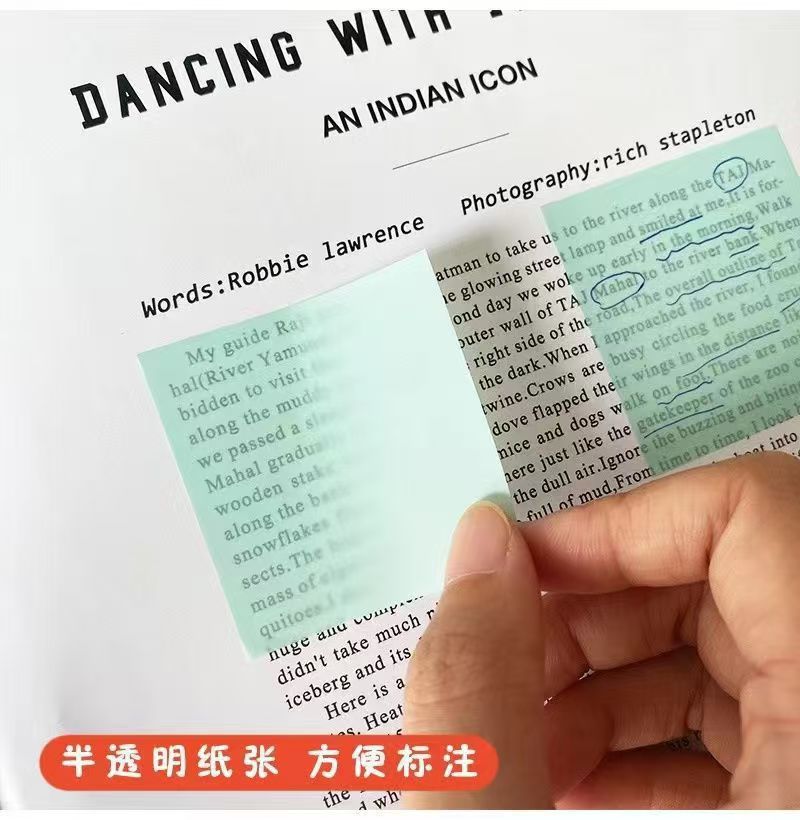 DANCING WITH
AN INDIAN ICON
Words:Robbie lawrence Photography:rich stapleton
My guide Raj
hal(River Yamu
bidden to visit
along the mud
we passed a
Mahal gradu
wooden stak
along the ba
snowflakes
sects.The
mass of
quitoes.
atman to take us to the river along the TAJ Ma-
e glowing street lamp and smiled at me,It is for-
ond day we woke up early in the morning,Walk
outer wall of TAJ Mahal to the river bank.When
right side of the road,The overall outline of T
the dark.When I approached the river, I foun
twine.Crows are busy circling the food cru
dove flapped their wings in the distance lik
nice and dogs walk on foot,There are no
here just like the gatekeeper of the zoo
the dull air.Ignore the buzzing and biting
full of mud,From time to time, I look
boat into
huge and
didn't take much
iceberg and its
Here is a
Heat
the
d wh
半透明纸张 方便标注